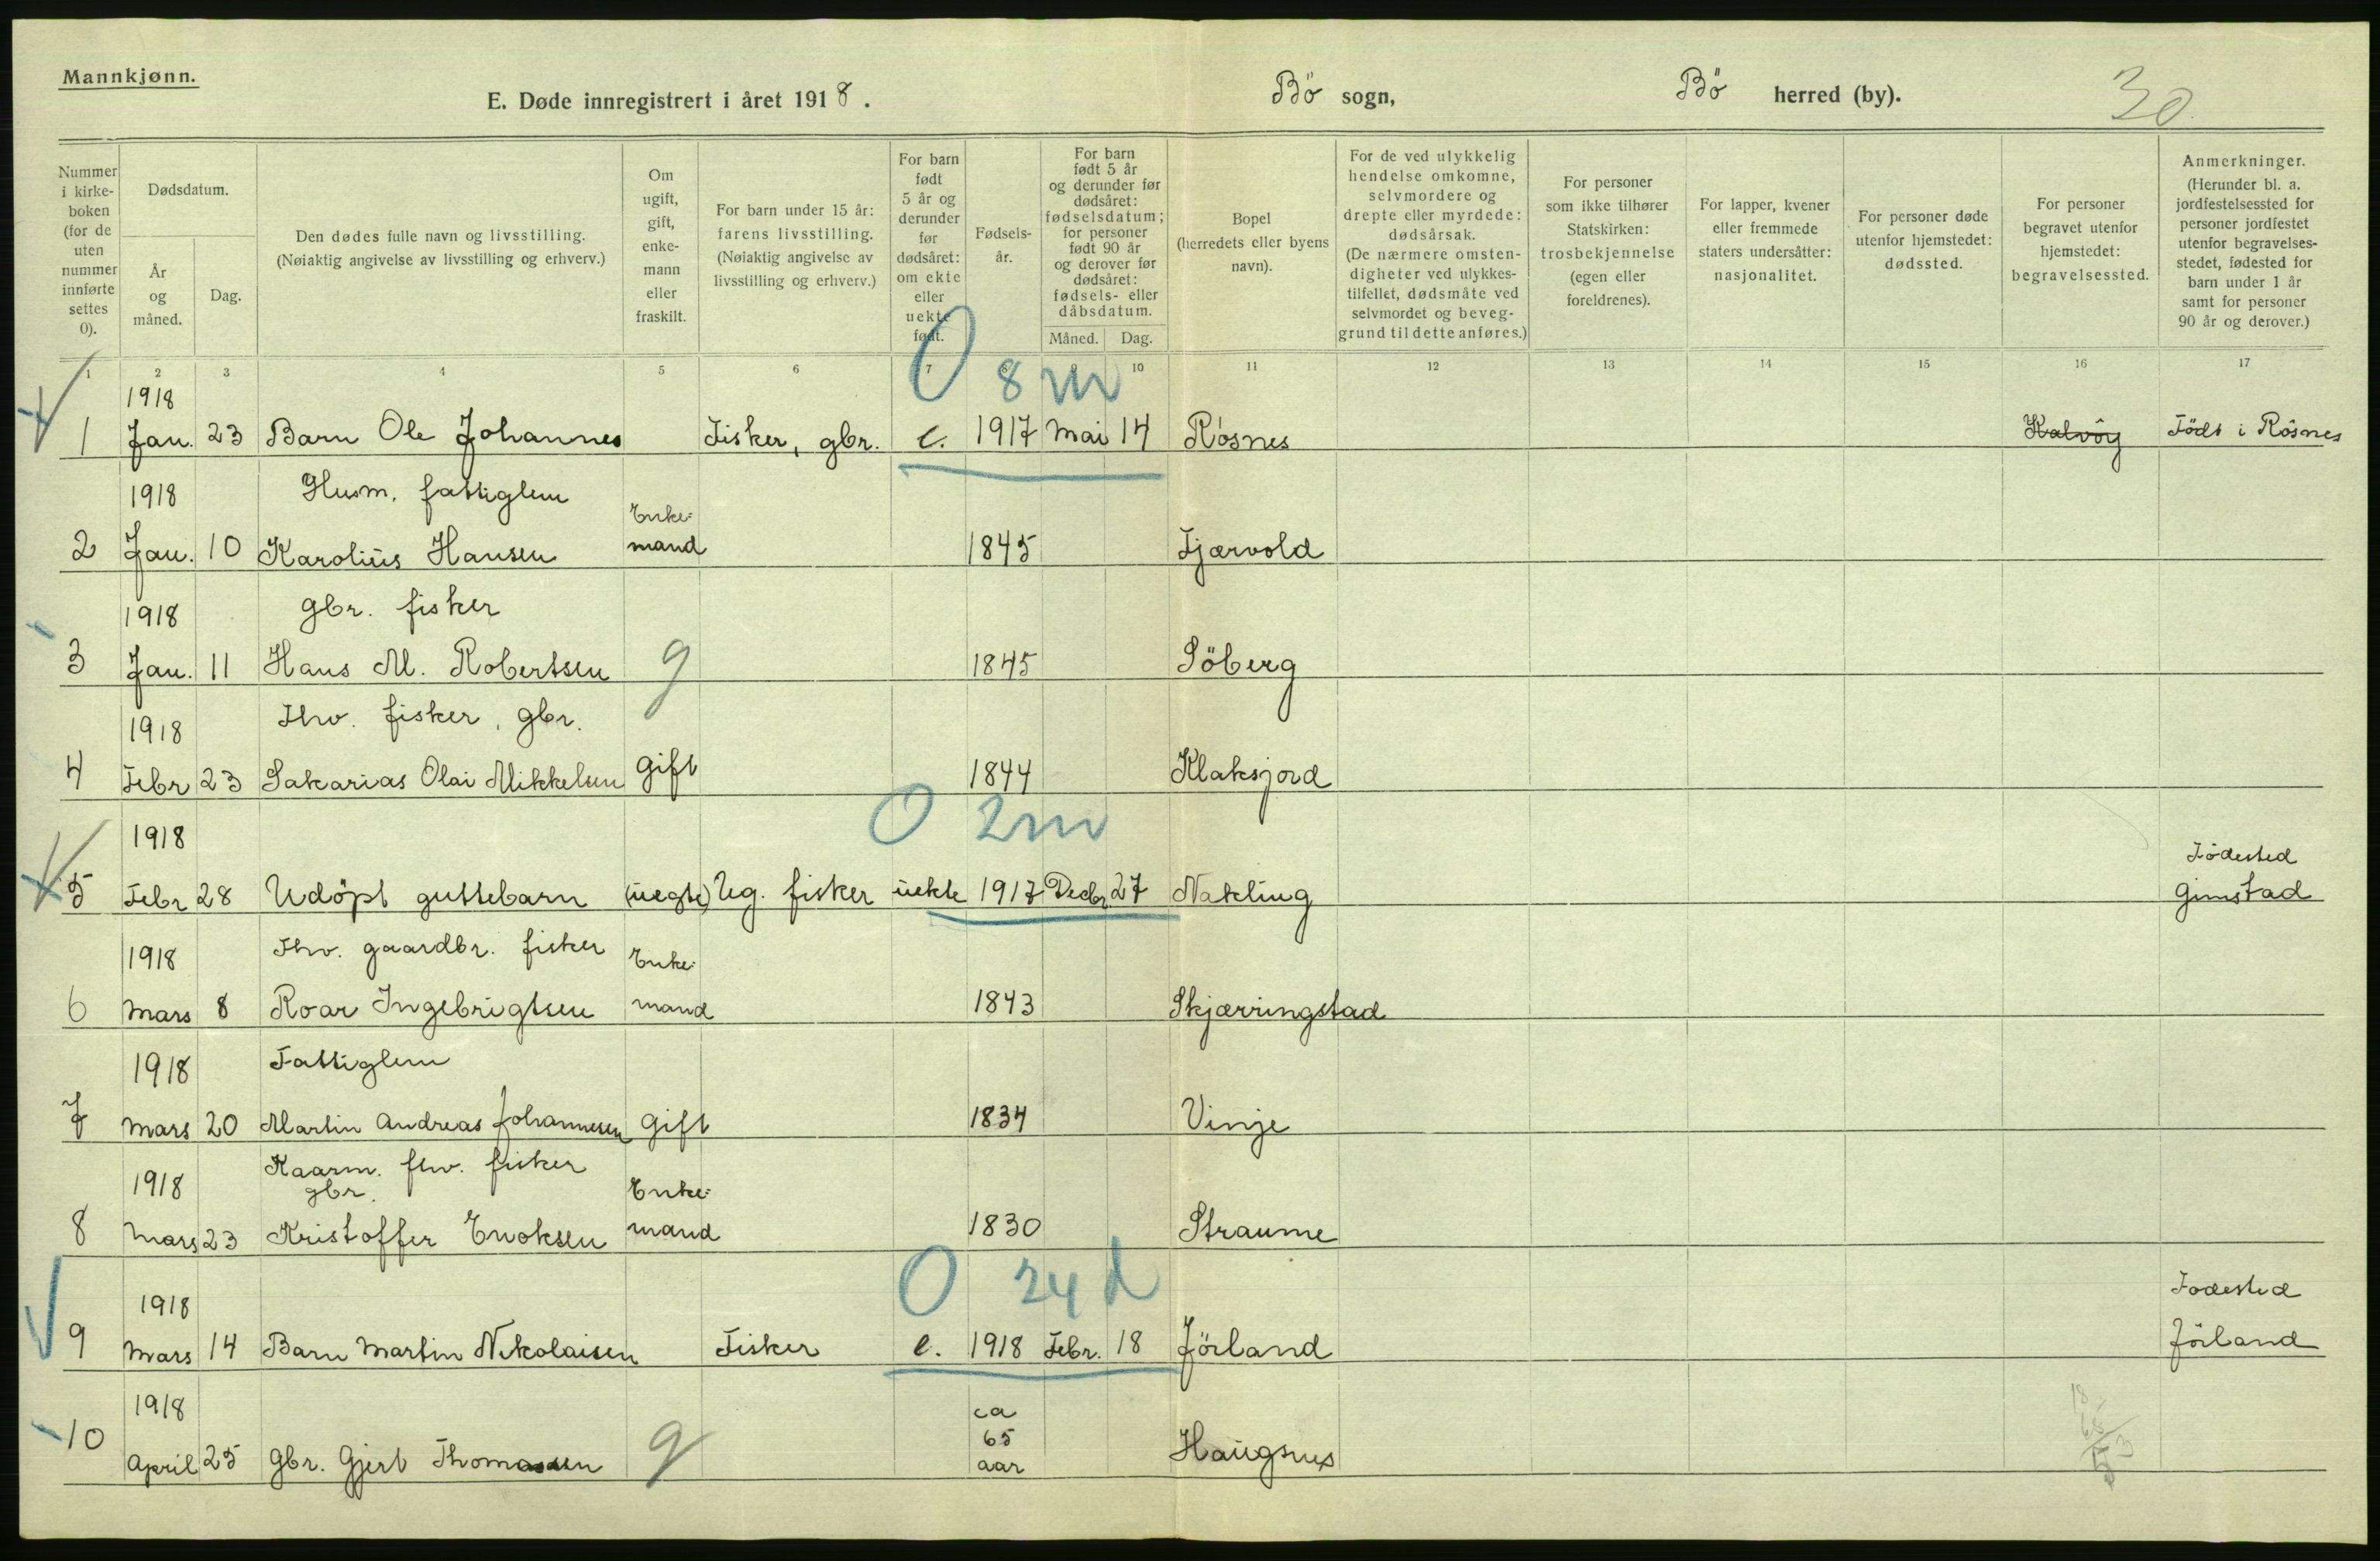 Mannkjønn.
E. Døde innregistrert i året 1918.
Bö sogn,
Bö herred (by).
30
Nummer i kirke-boken (for de uten nummer innførte settes 0).
Dødsdatum.
År og måned.
Dag.
Den dødes fulle navn og livsstilling.
(Nøiaktig angivelse av livsstilling og erhverv.)
Om ugift, gift, enke-mann eller fraskilt.
For barn under 15 år: farens livsstilling.
(Nøiaktig angivelse av livsstilling og erhverv.)
For barn født 5 år og derunder før dødsåret: om ekte eller uekte født.
Fødsels-år.
For barn født 5 år og derunder før dødsåret: fødselsdatum; for personer født 90 år og derover før dødsåret: fødsels- eller dåbsdatum.
Måned. Dag.
Bopel (herredets eller byens navn).
For de ved ulykkelig hendelse omkomne, selvmordere og drepte eller myrdede: dødsårsak.
(De nærmere omsten-digheter ved ulykkes-tilfellet, dødsmåte ved selvmordet og beveg-grund til dette anføres.)
For personer som ikke tilhører Statskirken: trosbekjennelse (egen eller foreldrenes).
For lapper, kvener eller fremmede staters undersåtter: nasjonalitet.
For personer døde utenfor hjemstedet: dødssted.
For personer begravet utenfor hjemstedet: begravelsessted.
Anmerkninger.
(Herunder bl. a. jordfestelsessted for personer jordfestet utenfor begravelses-stedet, fødested for barn under 1 år samt for personer 90 år og derover.)
1 2 3 4 5 6 7 8 9 10 11 12 13 14 15 16 17
0 8 m
1918
1 Jan. 23 Barn Ole Johannes Fisker, gbr. e. 1917 Mai 14 Rösnes Kalvöy Födt i Rösnes
1918 Husm. fattiglem Enke-
2 Jan. 10 Karolius Hansen mand 1845 Fjærvold
1918 gbr. fisker
3 Jan. 11 Hans M. Robertsen g 1845 Söberg
1918 Fhv. fisker, gbr.
4 Febr 23 Sakarias Olai Mikkelsen gift 1844 Klaksjord
0 2m
1918 Födested
5 Febr 28 Udöpt guttebarn (uegte) Ug. fisker uekte 1917 Decbr. 27 Nykling Gimstad
1918 Fhv. gaardbr. fisker Enke-
6 Mars 8 Roar Ingebrigtsen mand 1843 Skjærringstad
1918 Fattiglem
7 Mars 20 Martin Andreas Johannesen gift 1834 Vinje
1918 Kaarm. fhv. fisker gbr. Enke-
8 Mars 23 Kristoffer Enoksen mand 1830 Straume
0 24 d
1918 Födested
9 Mars 14 Barn Martin Nikolaisen Fisker e. 1918 Febr. 18 Jörland Jörland
1918 ca
65
10 April 25 Gbr. Gjert Thomassen g aar Haugsnes
18
65
53